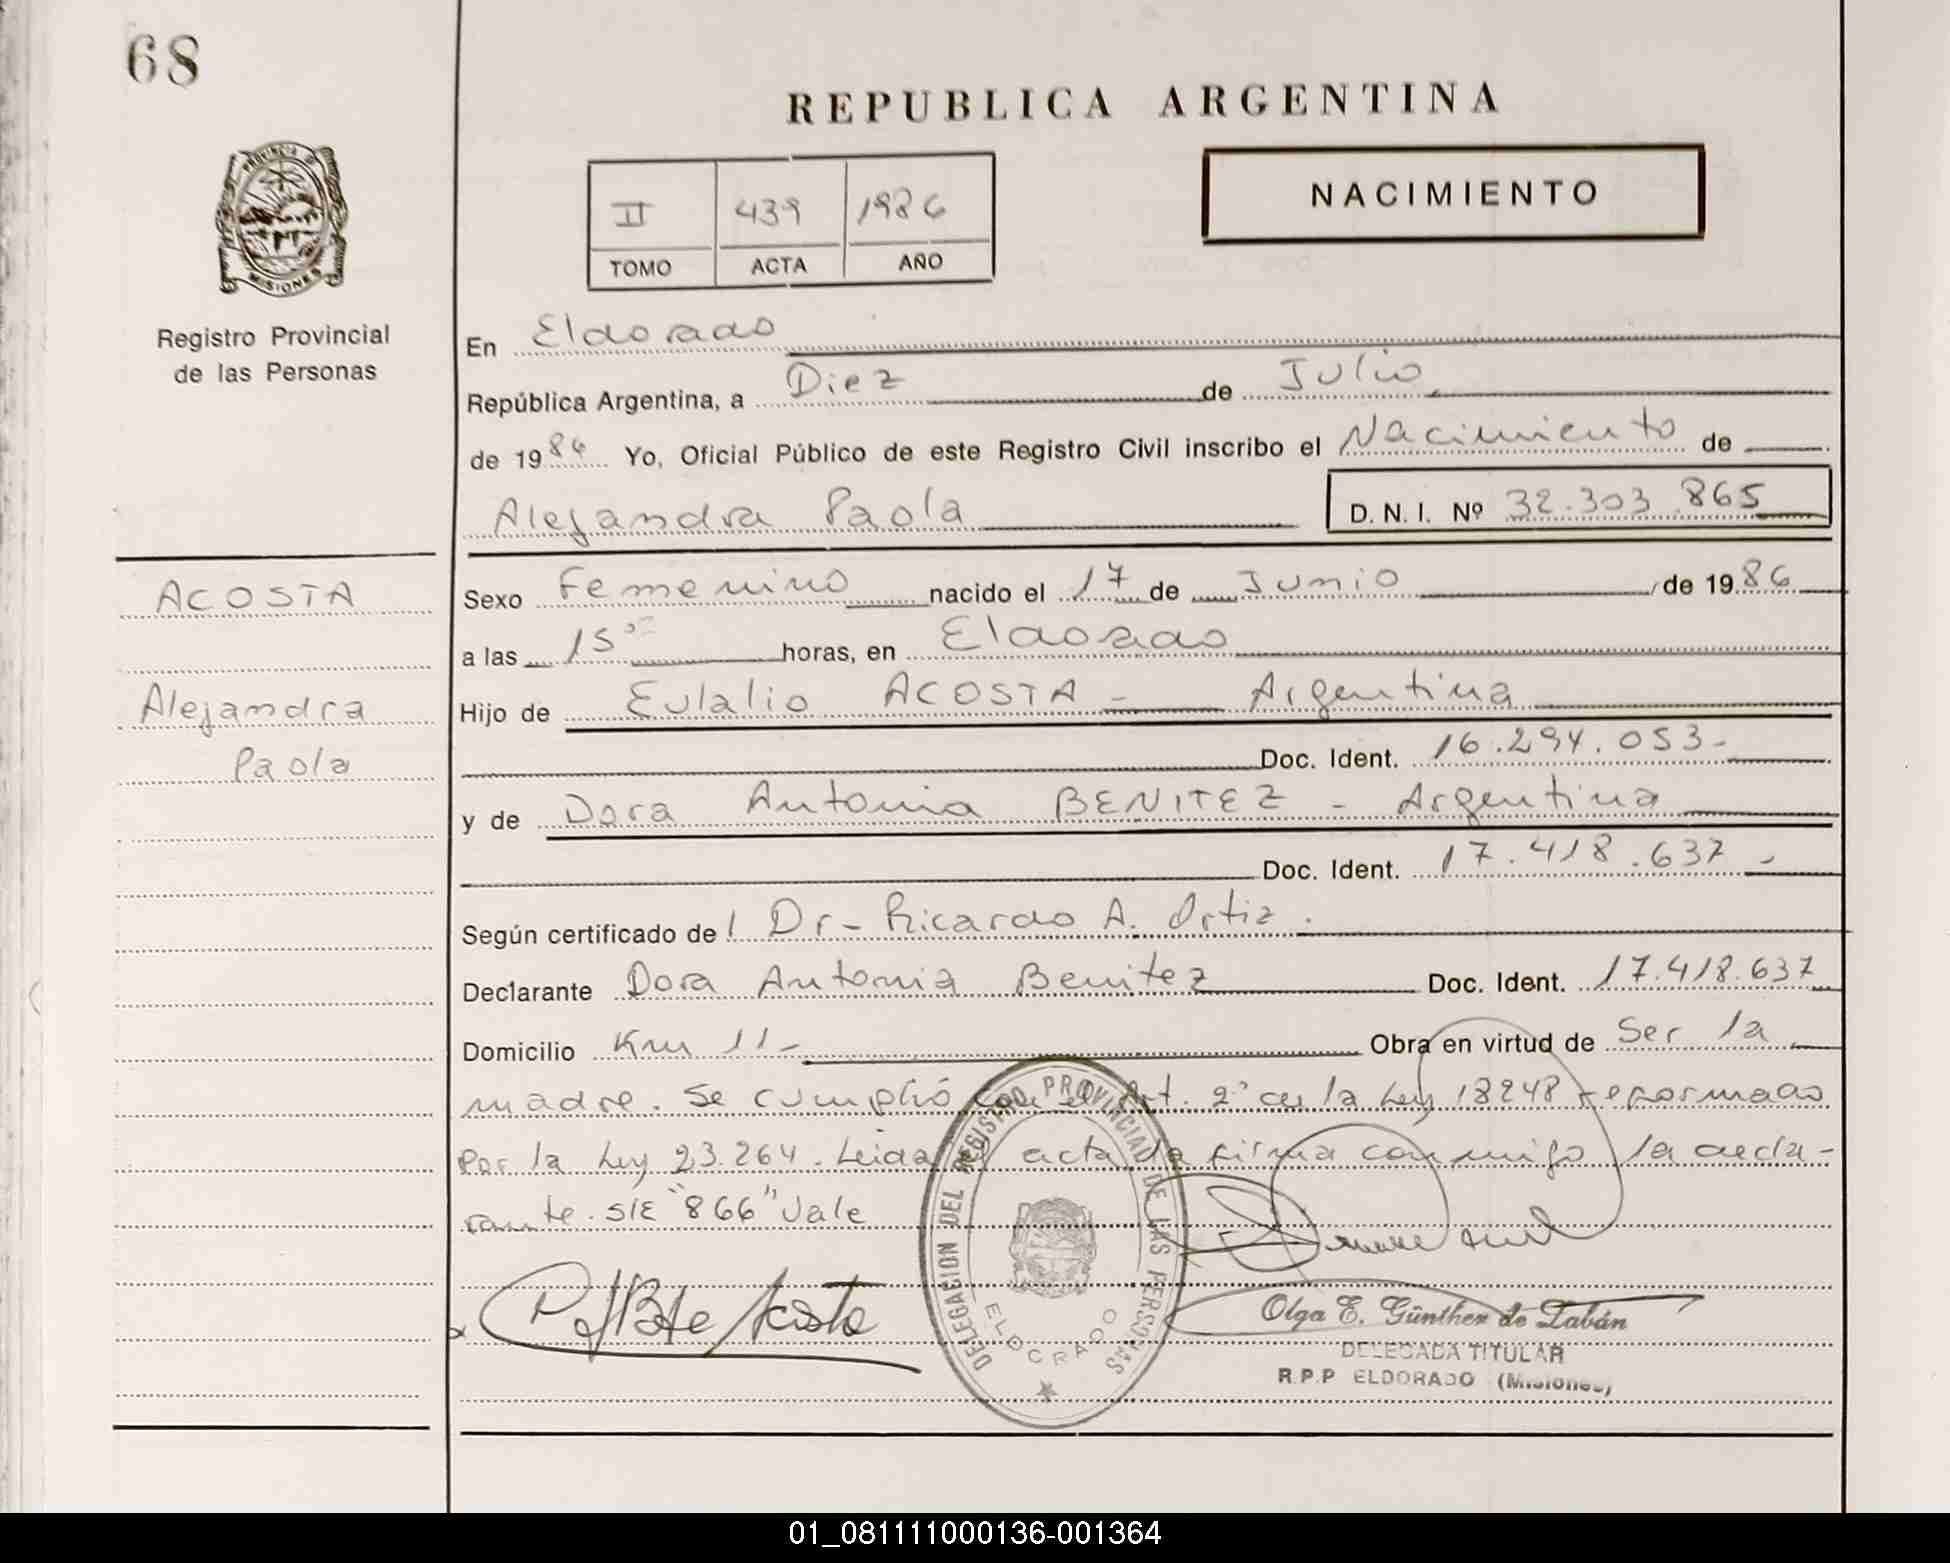 68
REPUBLICA ARGENTINA
PROVINCIA DE
MISIONES
II 439 1986
TOMO ACTA AÑO
NACIMIENTO
Registro Provincial
de las Personas
En Eldorado
República Argentina, a Diez de Julio
de 1986 Yo, Oficial Público de este Registro Civil inscribo el Nacimiento de
Alejandra Paola D. N. I. Nº 32.303.865
ACOSTA
Alejandra
Paola
Sexo Femenino nacido el 17 de Junio de 1986
a las 15 horas, en Eldorado
Hijo de Eulalio ACOSTA - Argentina
Doc. Ident. 16.294.053-
y de Dora Antonia BENITEZ - Argentina
Doc. Ident. 17.418.637-
Según certificado del Dr- Ricardo A. Ortiz.
Declarante Dora Antonia Benitez Doc. Ident. 17.418.637
Domicilio Km 11- Obra en virtud de Ser la
madre. Se cumplió con el Art. 2º de la Ley 18248 reformado
Por la Ley 23.264. Leida el acta la firma conmigo la decla-
rante. S/E "866" Vale
DELEGACION DEL REGISTRO PROVINCIAL DE LAS PERSONAS
ELDORADO
Olga E. Günther de Labán
DELEGADA TITULAR
R.P.P ELDORADO (Misiones)
01_081111000136-001364